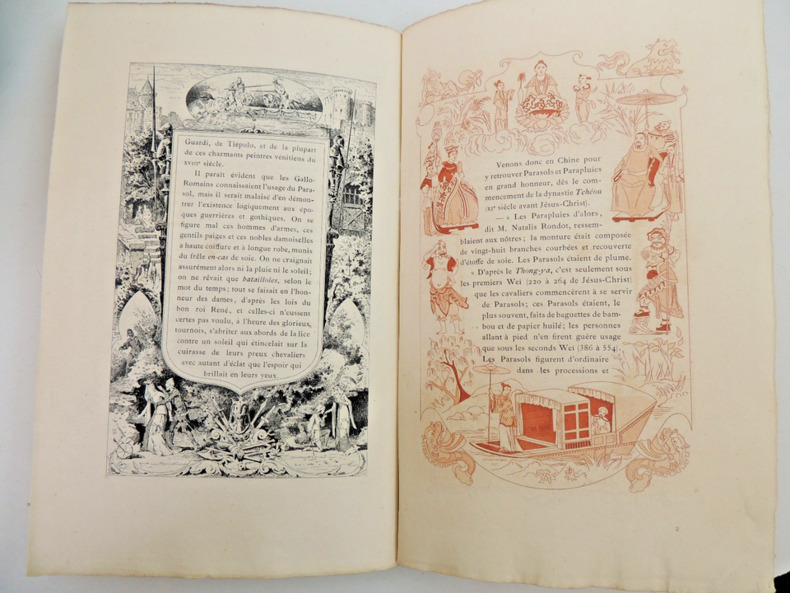 Guardi, de Tiépolo, et de la plupart
de ces charmants peintres vénitiens du
XVIIIe siècle.
Il paraît évident que les Gallo-
Romains connaissaient l'usage du Para-
sol, mais il serait malaisé d'en démon-
trer l'existence logiquement aux épo-
ques guerrières et gothiques. On se
figure mal ces hommes d'armes, ces
gentils paiges et ces nobles damoiselles
à haute coiffure et à longue robe, munis
du frêle en-cas de soie. On ne craignait
assurément alors ni la pluie ni le soleil;
on ne rêvait que batailloles, selon le
mot du temps; tout se faisait en l'hon-
neur des dames, d'après les lois du
bon roi René, et celles-ci n'eussent
certes pas voulu, à l'heure des glorieux
tournois, s'abriter aux abords de la lice
contre un soleil qui étincelait sur la
cuirasse de leurs preux chevaliers
avec autant d'éclat que l'espoir qui
brillait en leurs yeux.
Venons donc en Chine pour
y retrouver Parasols et Parapluies
en grand honneur, dès le com-
mencement de la dynastie Tchéou
(XIe siècle avant Jésus-Christ).
— « Les Parapluies d'alors,
dit M. Natalis Rondot, ressem-
blaient aux nôtres; la monture était composée
de vingt-huit branches courbées et recouverte
d'étoffe de soie. Les Parasols étaient de plume.
« D'après le Thong-ya, c'est seulement sous
les premiers Wei (220 à 264 de Jésus-Christ)
que les cavaliers commencèrent à se servir
de Parasols; ces Parasols étaient, le
plus souvent, faits de baguettes de bam-
bou et de papier huilé; les personnes
allant à pied n'en firent guère usage
que sous les seconds Wei (386 à 554).
Les Parasols figurent d'ordinaire
dans les processions et
2